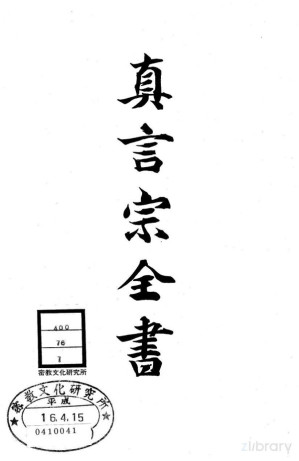 真言宗全書
400
76
1
密教文化研究所
密教文化研究所
平成
16.4.15
0410041
zlibrary